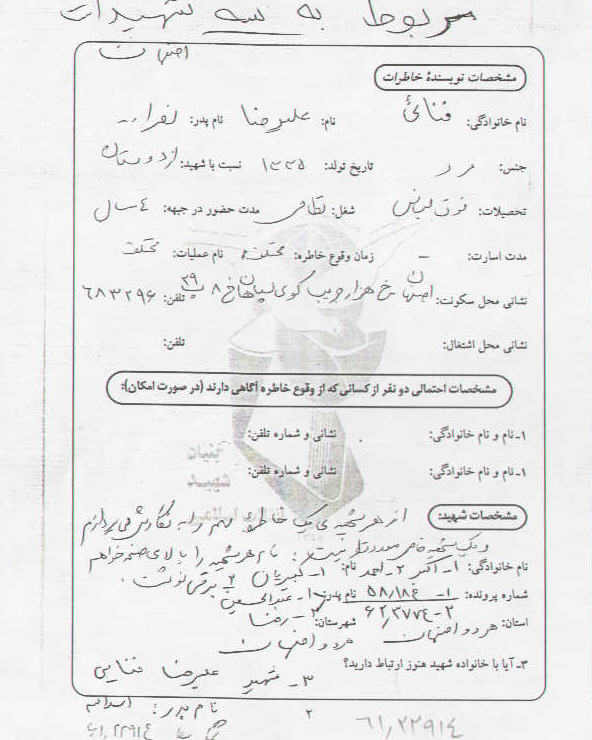 مربوط به سه شهیدات
اصفهان
مشخصات نویسندهٔ خاطرات
نام خانوادگی: فنائی نام: علیرضا نام پدر:
جنس: مرد تاریخ تولد: ۱۳۳۵ نسبت با شهید: از دوستان
تحصیلات: فوق لیسانس شغل: نظامی مدت حضور در جبهه: ۴ سال
مدت اسارت: – زمان وقوع خاطره: مختلف نام عملیات: مختلف
نشانی محل سکونت: اصفهان خ هزار جریب کوی خ ۸ پ ۲۹ تلفن: ۶۸۳۲۹۶
نشانی محل اشتغال: تلفن:
مشخصات احتمالی دو نفر از کسانی که از وقوع خاطره آگاهی دارند (در صورت امکان):
۱ـ نام و نام خانوادگی: نشانی و شماره تلفن:
۱ـ نام و نام خانوادگی: نشانی و شماره تلفن:
بنیاد
شهید
انقلاب اسلامی
مشخصات شهید: از هر شهیدی یک خاطره مهم را به نگارش می‌پردازم
و یک شهید خاص مورد نظر نیست. نام هر شهید را بالای صفحه خواهم نوشت.
نام خانوادگی: ۱- اکبر ۲- احمد نام: ۱- ۲-
شماره پرونده: ۱- ۵۸/۱۸۶ نام پدر: ۱- عبدالحسین
۲- ۶۲/۳۷۷۴ ۲- رضا
استان: هر دو اصفهان شهرستان: هر دو اصفهان
۳ـ آیا با خانواده شهید هنوز ارتباط دارید؟
۳- شهید علیرضا فنایی
نام پدر: اسداله
۶۱/۲۲۹۱۴
۲
۶۱,۲۲۹۱۴